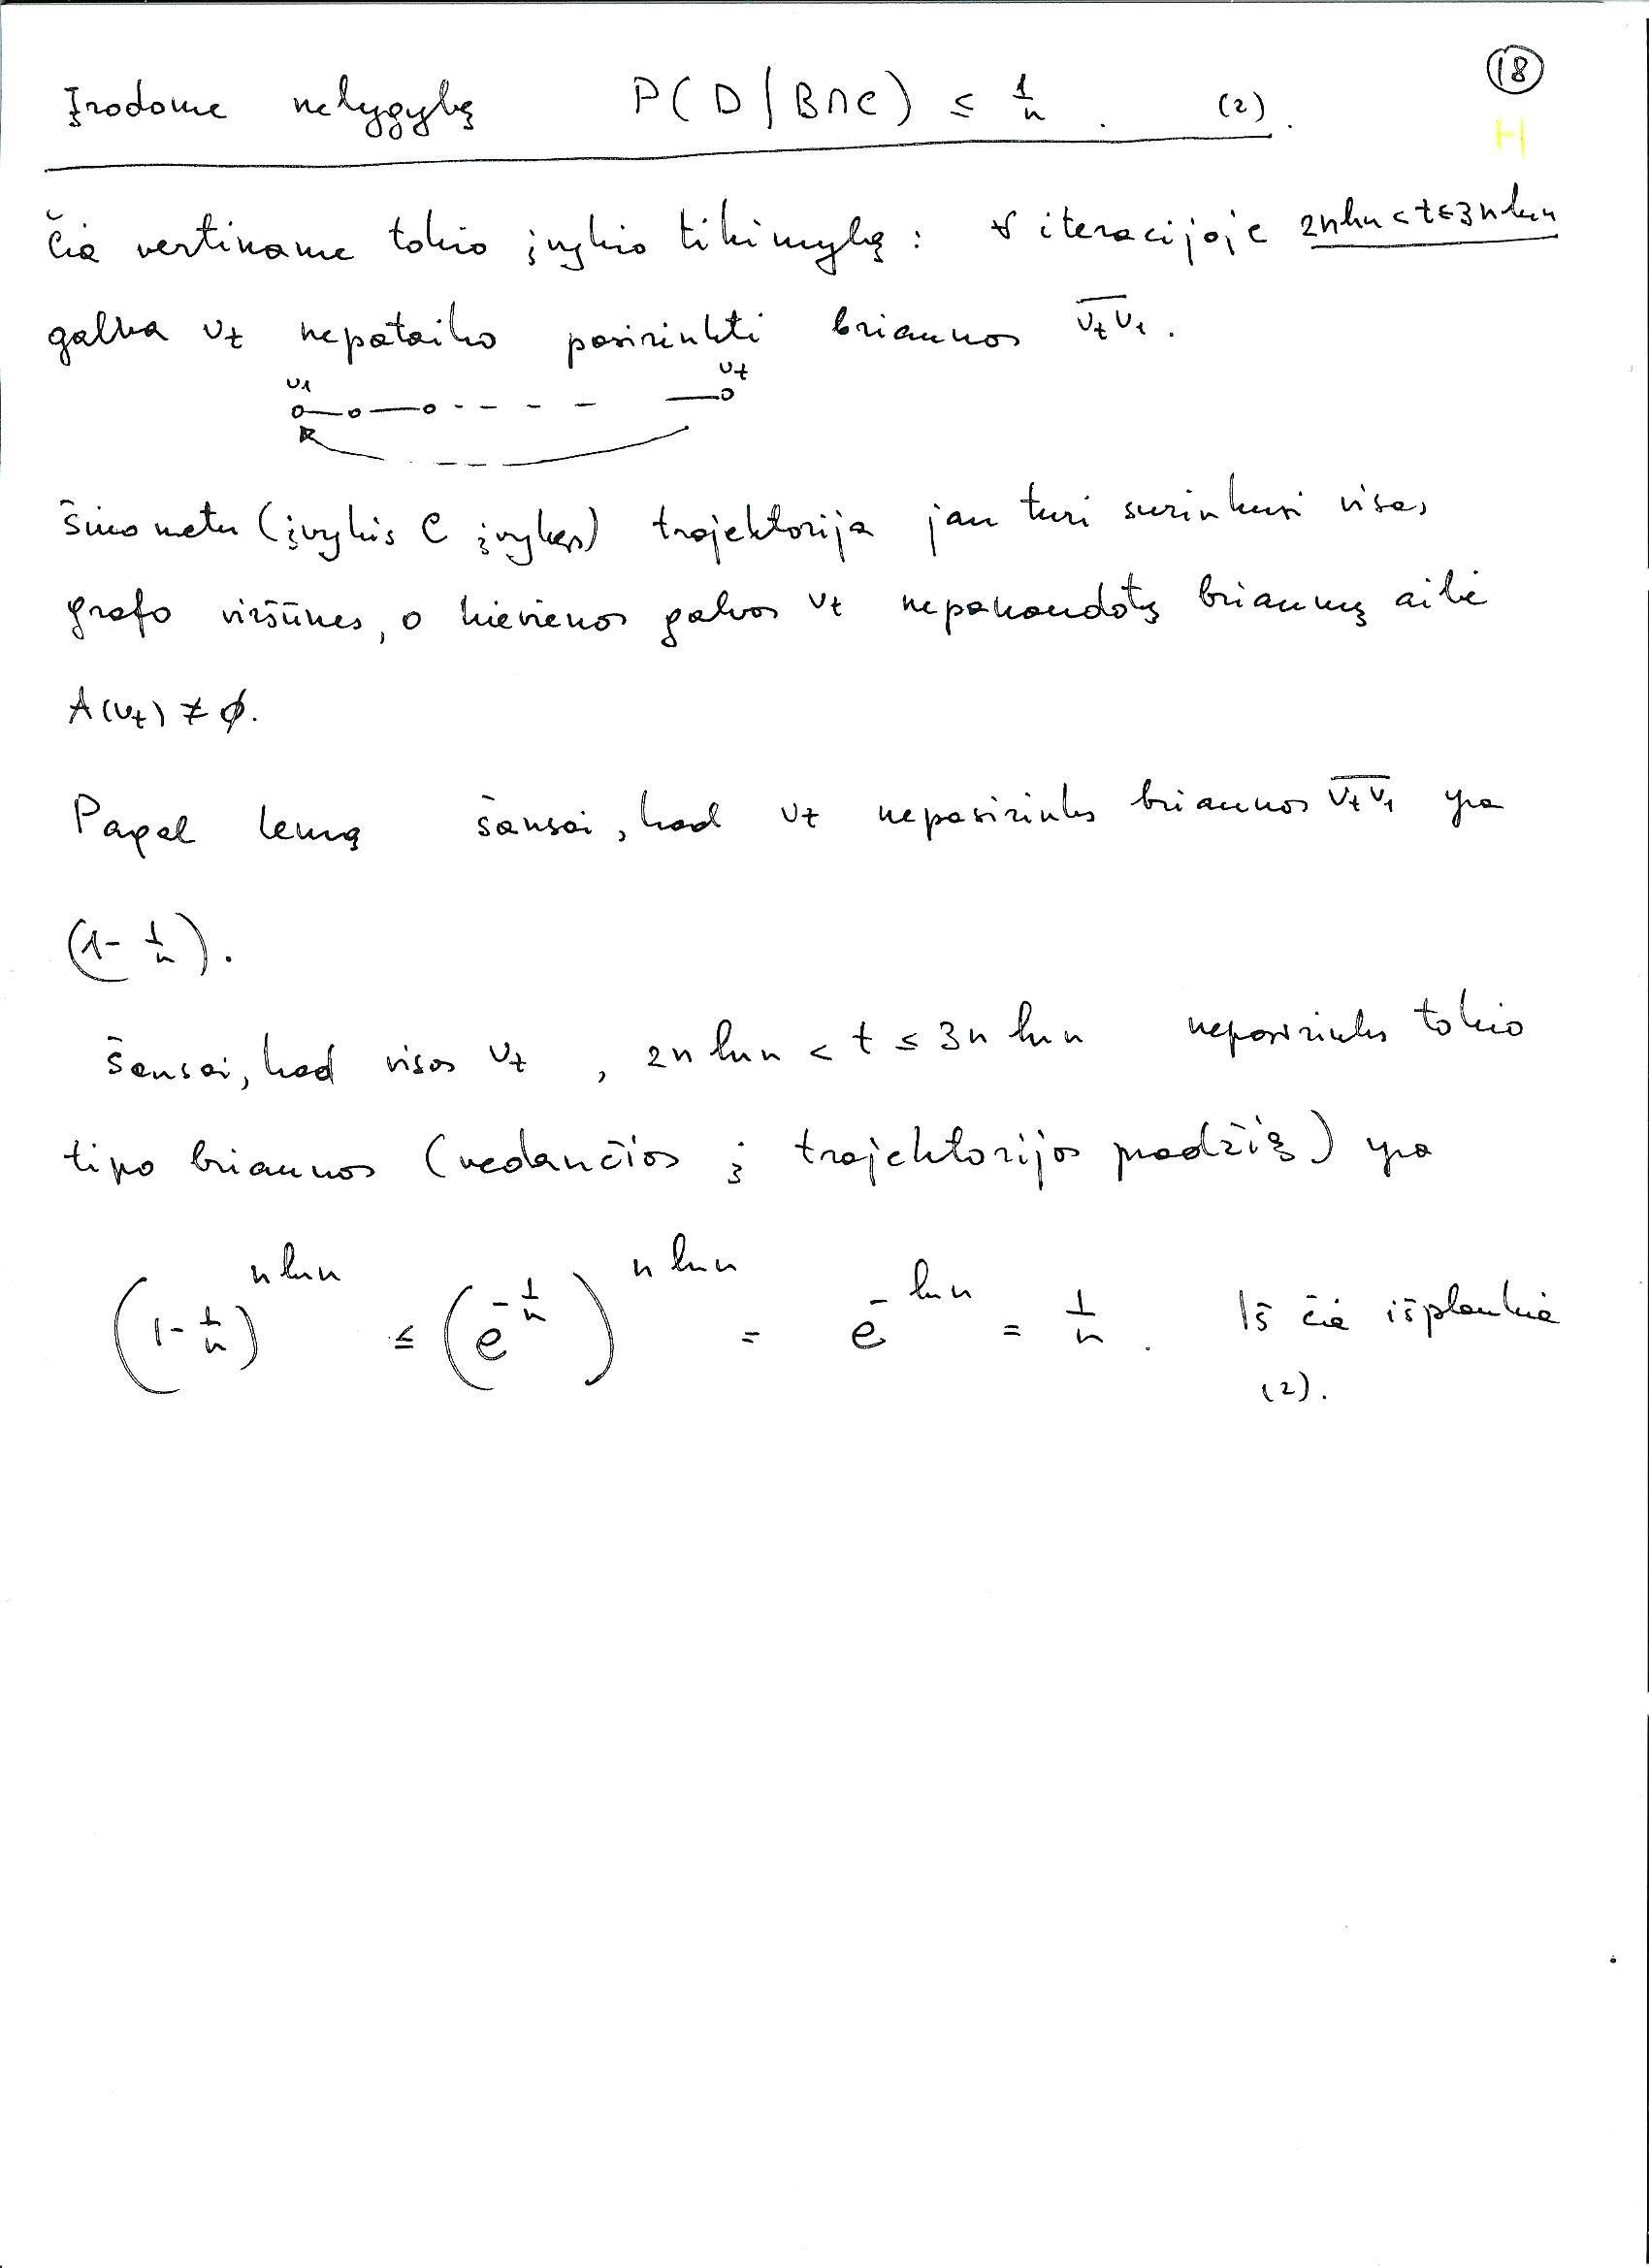 18
H
Įrodome nelygybę P(D/B∩C) ≤ 1/n. (2).
Čia vertiname tokio įvykio tikimybę: ∀ iteracijoje 2n ln n < t ≤ 3n ln n
galva v_t nepataiko pasirinkti briaunos \overline{v_t v_1}.
v_1 v_t
Šiuo metu (įvykis C įvykęs) trajektorija jau turi surinkusi visas
grafo viršūnes, o kievienos galvos v_t nepanaudotų briaunų aibė
A(v_t) ≠ ∅.
Pagal lemą šansai, kad v_t nepasirinks briaunos \overline{v_t v_1} yra
(1 - 1/n).
Šansai, kad visos v_t, 2n ln n < t ≤ 3n ln n nepasirinks tokio
tipo briaunos (vedančios į trajektorijos pradžią) yra
(1 - 1/n)^{n ln n} ≤ (e^{-1/n})^{n ln n} = e^{-ln n} = 1/n. Iš čia išplaukia
(2).